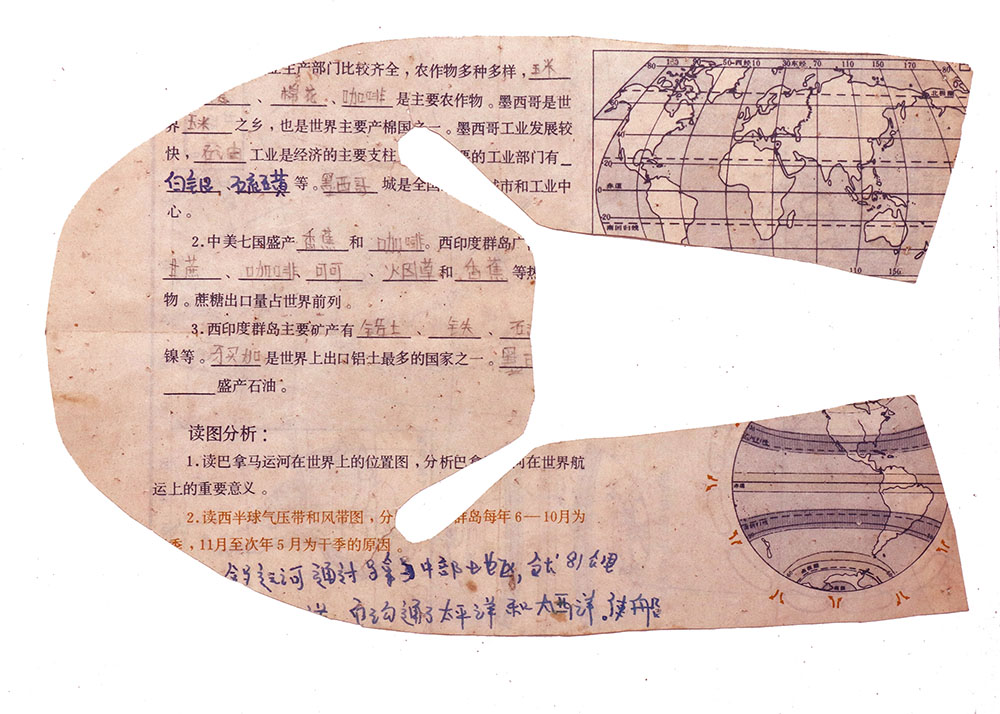 生产部门比较齐全，农作物多种多样，玉米
、棉花、咖啡 是主要农作物。墨西哥是世
界 玉米 之乡，也是世界主要产棉国之一。墨西哥工业发展较
快，石油 工业是经济的主要支柱 要的工业部门有
等。墨西哥 城是全国 城市和工业中
心。
2.中美七国盛产 香蕉 和 咖啡。西印度群岛广
甘蔗、咖啡 可可、火因草 和 香蕉 等热
物。蔗糖出口量占世界前列。
3.西印度群岛主要矿产有 铝土、铁、石
镍等。牙买加 是世界上出口铝土最多的国家之一。墨西
盛产石油。
读图分析：
1.读巴拿马运河在世界上的位置图，分析巴拿 河在世界航
运上的重要意义。
2.读西半球气压带和风带图，分 群岛每年6—10月为
季，11月至次年5月为干季的原因。
运河通过 中部
而沟通了太平洋和大西洋。使船
80 50 西经 10 30东经 70 110 150 170
80
北极圈
40
20 20
赤道
20
南回归线
110 150
赤道
南极圈